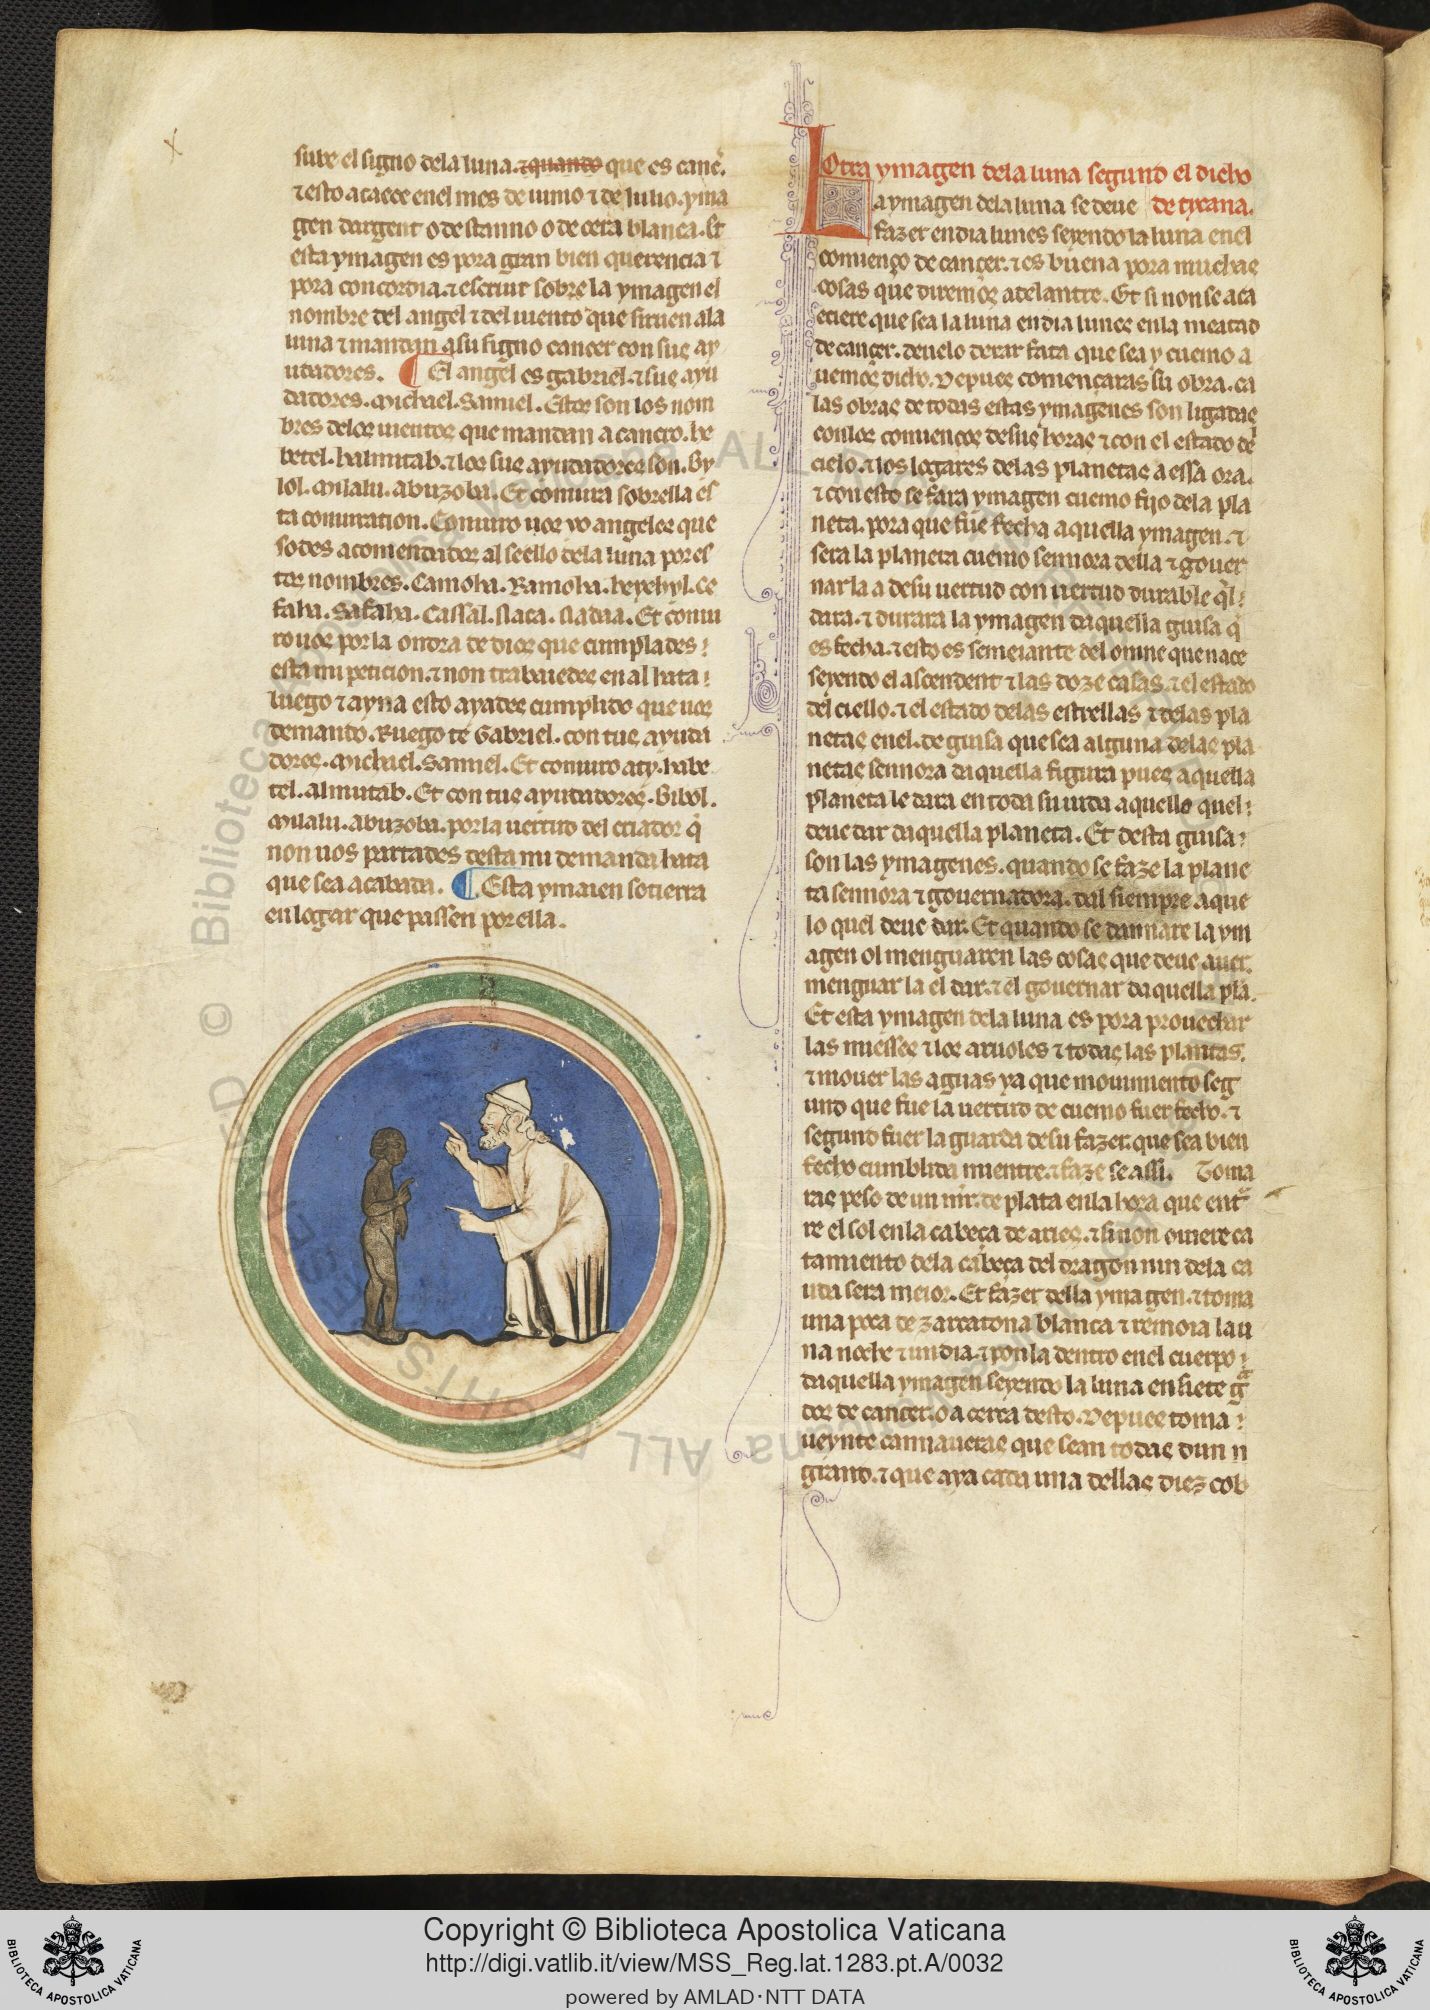 sube el signo dela luna. ⁊quando que es canc̃.
⁊esto acaece enel mes de iunio ⁊ de Julio. yma
gen dargent o destanno o de cera blanca. Et
esta ymagen es pora gran bien querencia ⁊
pora concordia. ⁊escriuir sobre la ymagen el
nombre del angel ⁊ del uiento que siruen ala
luna ⁊ mandan asu signo cancer con sus ay
udadores. ¶ El angel es gabriel. ⁊ sus ayu
dadores. Michael. Samiel. Estos son los nom
bres delos uientos que mandan a cancro. he
betel. halmutab. ⁊ los sus ayudadores son. By
lol. Milalu. abuzoba. Et coniura sobrella es
ta coniuration. Coniuro uos yo angeles que
sodes acomendados al seello dela luna por es
tos nombres. Camoha. Ramoha. heyehyl. Ce
faha. Safaha. Cassal. Naca. Nadaa. Et coniu
ro uos por la ondra de dios que cumplades
esta mi peticion. ⁊ non trabaiedes en al fata
luego ⁊ ayna esto ayades cumplido que uos
demando. Ruego te Gabriel. con tus ayuda
dores. Michael. Samiel. Et coniuro aty. habe
tel. almutab. Et con tus ayudadores. Bibol.
Milalu. abuzoba. por la uertud del criador q̃
non uos partades desta mi demanda fata
que sea acabada. ¶ Esta ymaien sotierra
en logar que passen por ella.
Otra ymagen dela luna segund el dicho
de tycana.
La ymagen dela luna se deue
fazer en dia lunes seyendo la luna enel
comienço de cancer. ⁊ es buena pora muchas
cosas que diremos adelantre. Et si non se aca
eciere que sea la luna en dia lunes enla meatad
de cancer. deuelo dexar fata que sea y cuemo a
uemos dicho. Depues comencaras su obra. ca
las obras de todas estas ymagenes son ligadas
conlos comienços desus horas ⁊ con el estado del
cielo. ⁊ los logares delas planetas a essa ora.
⁊ con esto se fara ymagen cuemo fijo dela pla
neta. pora que fue fecha aquella ymagen. ⁊
sera la planeta cuemo sennora della ⁊ gouer
narla a desu uertud con uertud durable q̃l
dara. ⁊ durara la ymagen daquella guisa q̃
es fecha. ⁊ esto es semeiante del omne que nace
seyendo el ascendent ⁊ las doze casas. ⁊ el estado
del ciello. ⁊ el estado delas estrellas ⁊ delas pla
netas enel. de guisa que sea alguna delas pla
netas sennora daquella figura pues aquella
planeta le dara en toda su uida aquello quel
deue dar daquella planeta. Et desta guisa
son las ymagenes. quando se faze la plane
ta sennora ⁊ gouernadora. dal siempre aque
lo quel deue dar. Et quando se dannare la ym
agen ol menguaren las cosas que deue auer.
menguar la el dar. ⁊ el gouernar daquella pla.
Et esta ymagen dela luna es pora prouechar
las miesses ⁊ los aruoles ⁊ todas las plantas.
⁊ mouer las aguas ya que mouimiento seg
und que fue la uertud de cuemo fuer fecho. ⁊
segund fuer la guarda desu fazer. que sea bien
fecho cumblida mientre. ⁊ faze se assi. Toma
ras peso de un mr̃. de plata enla hora que ent
re el sol enla cabeça de aries. ⁊ si non ouiere ca
tamiento dela cabeça del dragon nin dela ca
uda sera meior. Et fazer della ymagen. ⁊ toma
una poca de zarcatona blanca ⁊ remoia la u
na noche ⁊ un dia. ⁊ pon la dentro enel cuerpo
daquella ymagen seyendo la luna en siete g̃
dos de cancer. o a cerca desto. Depues toma
ueynte cannaueras que sean todas dun n
girand. ⁊ que aya cada una dellas diez cob
Copyright © Biblioteca Apostolica Vaticana
http://digi.vatlib.it/view/MSS_Reg.lat.1283.pt.A/0032
powered by AMLAD·NTT DATA
BIBLIOTECA APOSTOLICA VATICANA
BIBLIOTECA APOSTOLICA VATICANA